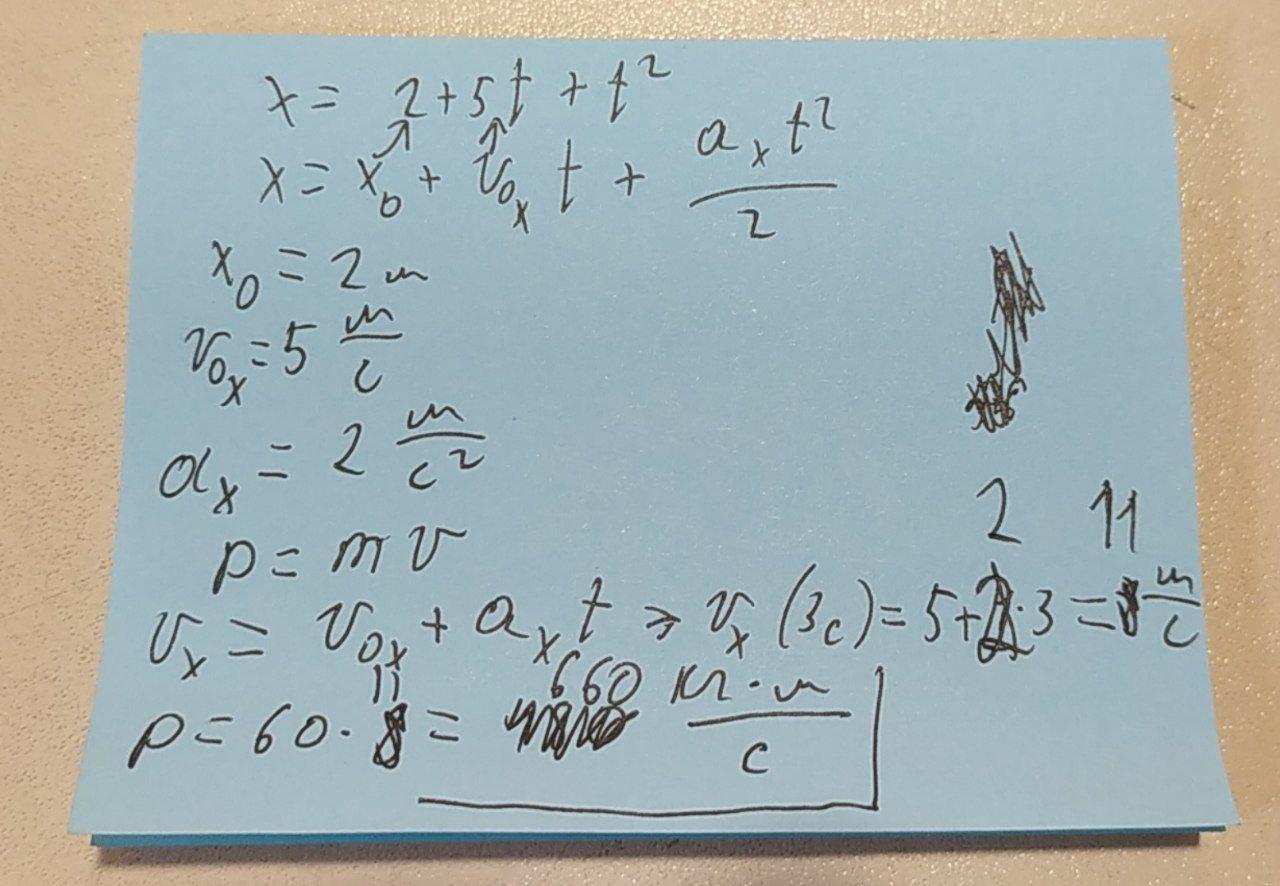 x = 2 + 5t + t²
x = x₀ + v₀ₓ t + aₓt²/2
x₀ = 2 м
v₀ₓ = 5 м/с
aₓ = 2 м/с²
p = m v
2 11
vₓ = v₀ₓ + aₓ t ⇒ vₓ (3с) = 5 + 2·3 = м/с
11 660
p = 60 · = кг·м/с